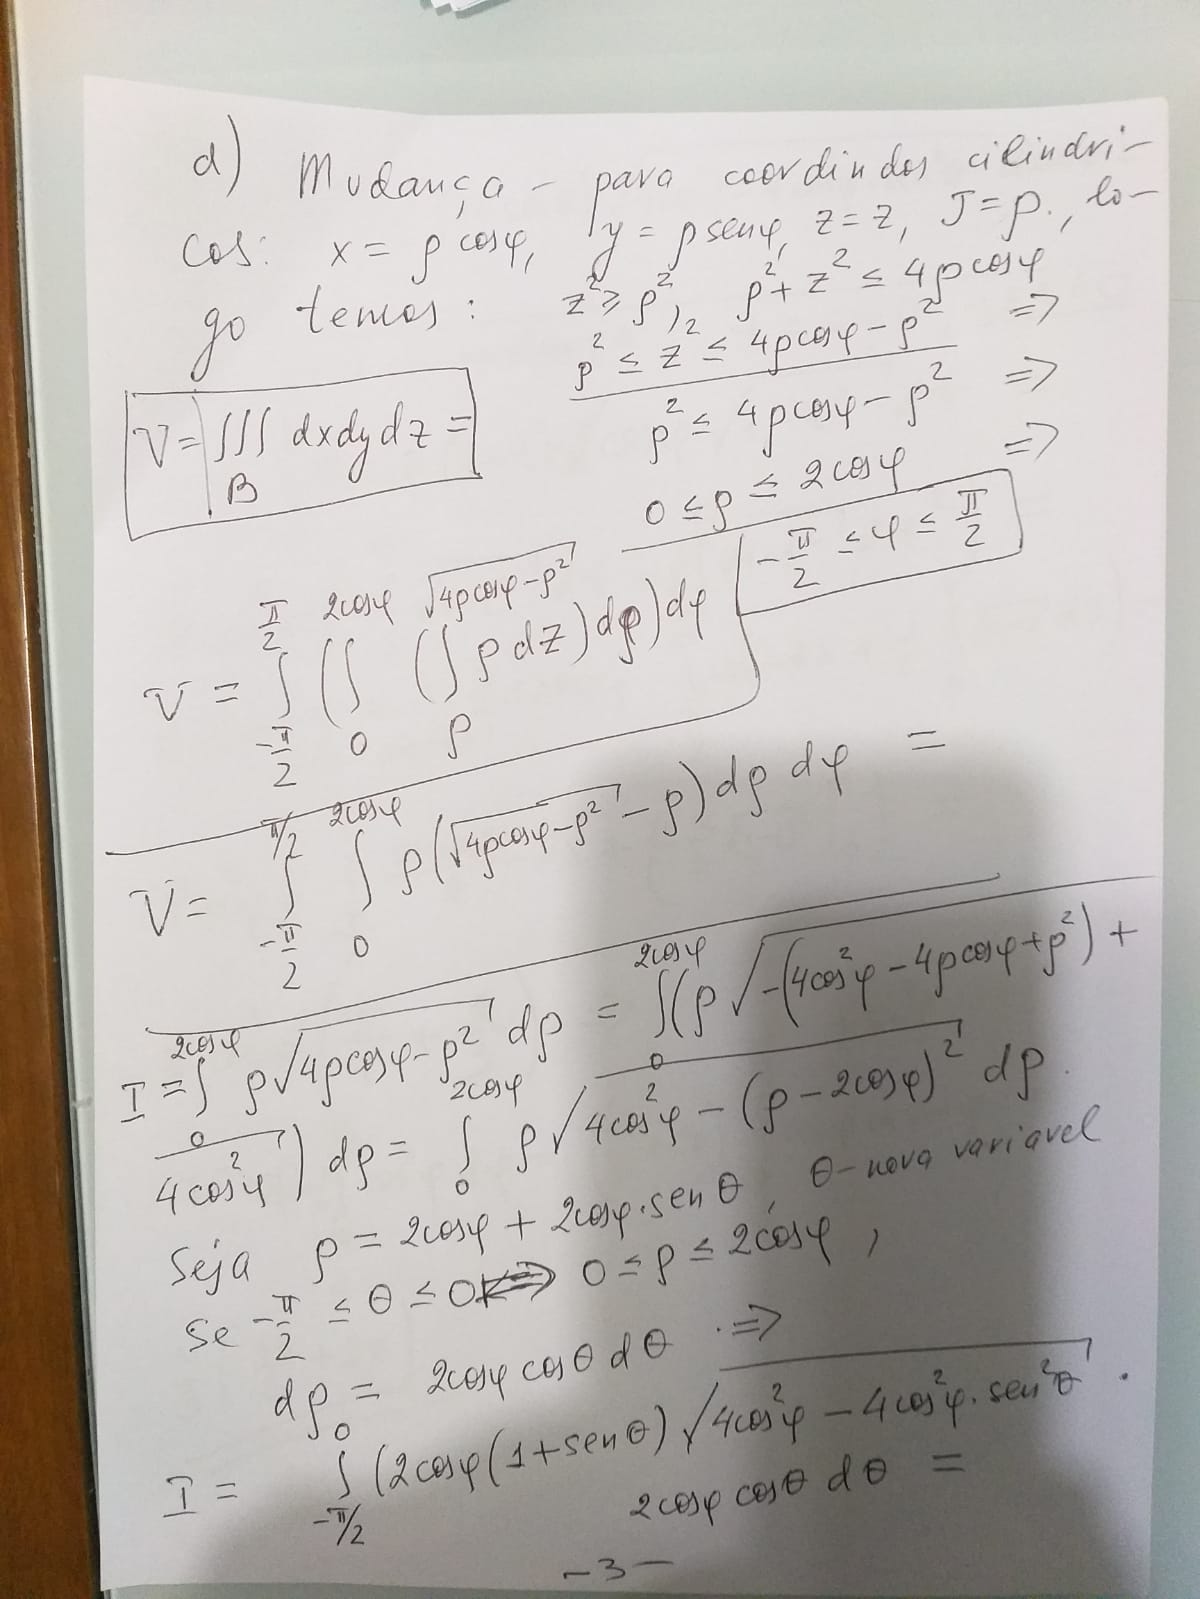 d) Mudança - para coordindos cilindri-
cos: x = ρ cosφ, y = ρ senφ, z = z, J = ρ., lo-
go temos: z² ≥ ρ², ρ² + z² ≤ 4ρcosφ
ρ² ≤ z² ≤ 4ρcosφ - ρ² =>
V = ∭_B dxdydz =
ρ² ≤ 4ρcosφ - ρ² =>
0 ≤ ρ ≤ 2cosφ =>
-π/2 ≤ φ ≤ π/2
V = ∫_{-π/2}^{π/2} (∫_0^{2cosφ} (∫_ρ^{√(4ρcosφ-ρ²)} ρ dz) dρ) dφ
V = ∫_{-π/2}^{π/2} ∫_0^{2cosφ} ρ(√(4ρcosφ-ρ²) - ρ) dρ dφ =
I = ∫_0^{2cosφ} ρ√(4ρcosφ-ρ²) dρ = ∫_0^{2cosφ} (ρ √(-(4cos²φ - 4ρcosφ + ρ²) +
4cos²φ)) dρ = ∫_0^{2cosφ} ρ √(4cos²φ - (ρ - 2cosφ)²) dρ.
Seja ρ = 2cosφ + 2cosφ·senθ, θ - nova variavel
Se -π/2 ≤ θ ≤ 0 <=> 0 ≤ ρ ≤ 2cosφ,
dρ = 2cosφ cosθ dθ .=>
I = ∫_{-π/2}^0 (2cosφ(1+senθ) √(4cos²φ - 4cos²φ·sen²θ) .
2cosφ cosθ dθ =
-3-